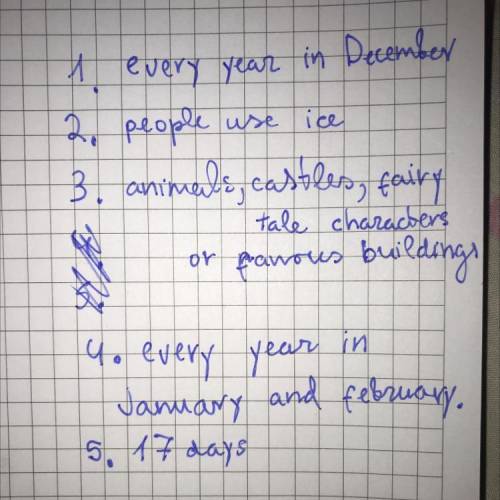 1. every year in December
2. people use ice
3. animals, castles, fairy
tale characters
or famous buildings
4. every year in
January and february.
5. 17 days